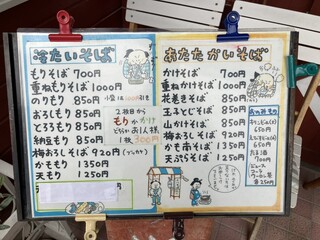 冷たいそば
もりそば 700円
重ねもりそば 1000円
のりもり 850円
おろしもり 850円
とろろもり 850円
納豆もり 850円
梅おろしそば 920円
かももり 1350円
天もり 1250円
2枚目から
もり かけ
1枚 300円
あたたかいそば
かけそば 700円
重ねかけそば 1000円
花巻そば 850円
玉子とじそば 850円
山かけそば 850円
梅おろしそば 920円
かも南そば 1350円
天ぷらそば 1250円
650円
650円
700円
ジュース
コーラ
ウーロン茶
各250円